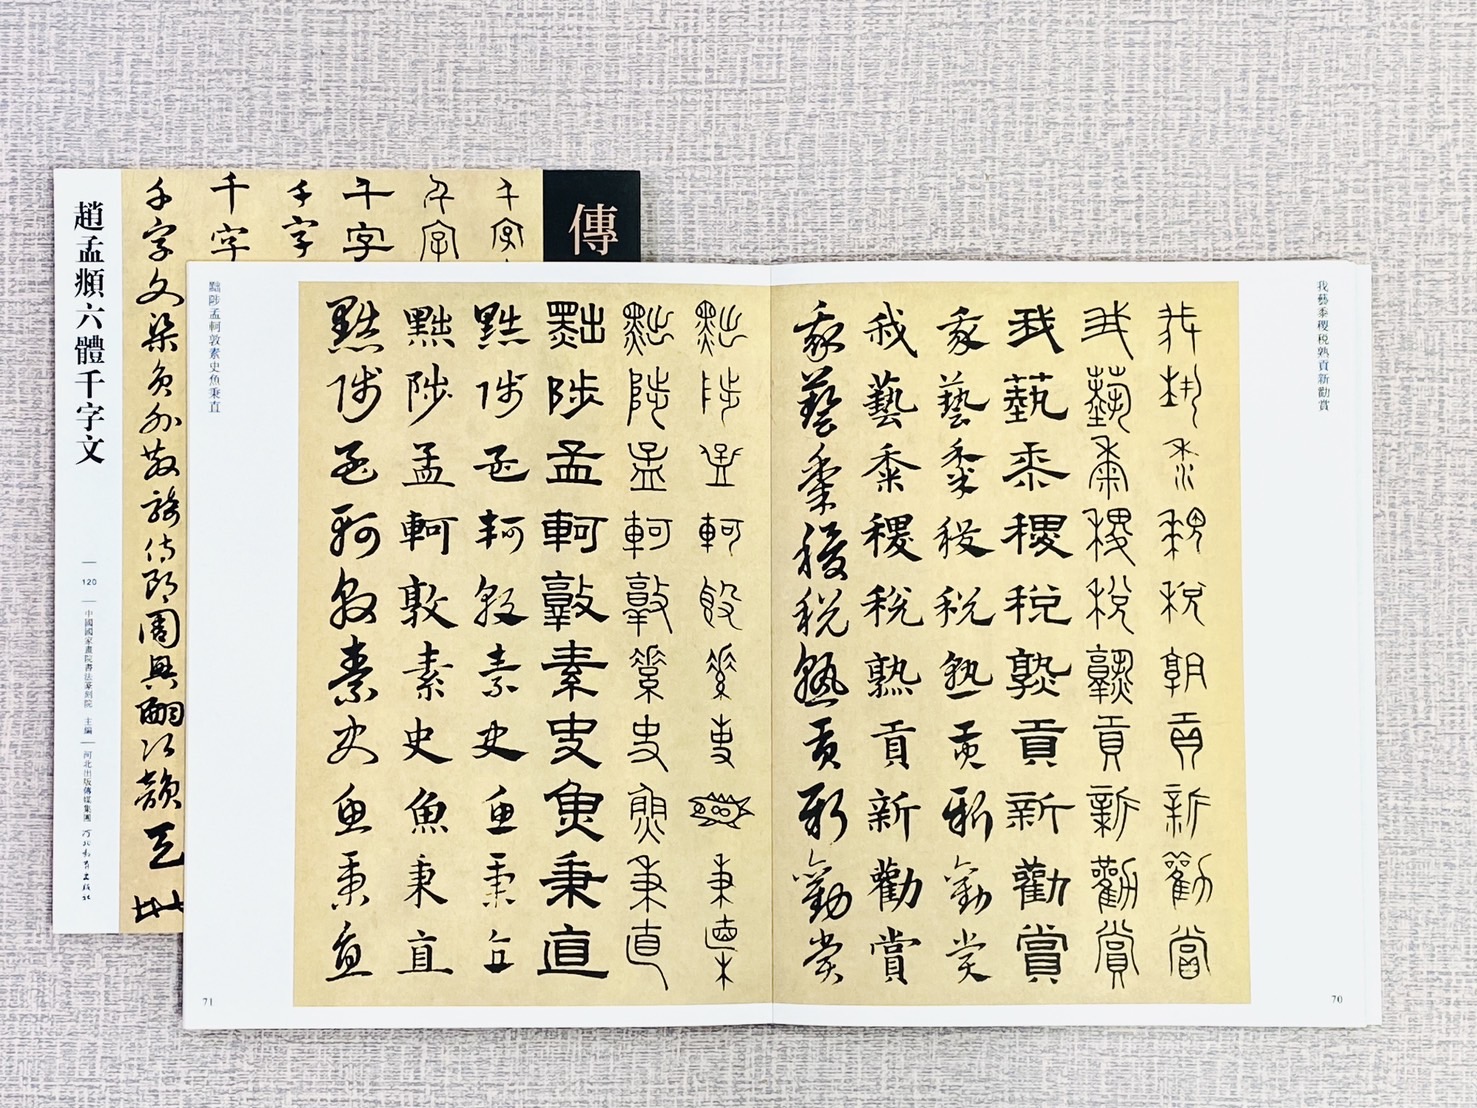 趙孟頫六體千字文
120
中國國家畫院書法篆刻院 主編
河北出版傳媒集團 河北教育出版社
傳
千字
千字
千字
千字
千字
千字文梁員外散騎侍郎周興嗣次韻天地
70
我藝黍稷稅熟貢新勸賞
我藝黍稷稅熟貢新勸賞
我藝黍稷稅熟貢新勸賞
我藝黍稷稅熟貢新勸賞
我藝黍稷稅熟貢新勸賞
我藝黍稷稅熟貢新勸賞
我藝黍稷稅熟貢新勸賞
黜陟孟軻敦素史魚秉直
黜陟孟軻敦素史魚秉直
黜陟孟軻敦素史魚秉直
黜陟孟軻敦素史魚秉直
黜陟孟軻敦素史魚秉直
黜陟孟軻敦素史魚秉直
黜陟孟軻敦素史魚秉直
71